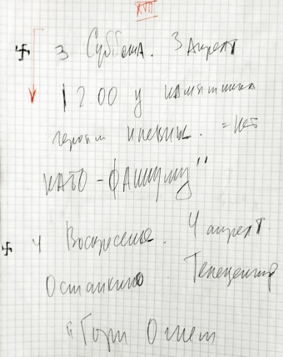 XVII
3 Суббота. 3 апрель
12.00 у памятника
героям = Нет
НАТО - фашизму"
4 Воскресенье. 4 апрель
Останкино Телецентр
"Гори Огнем